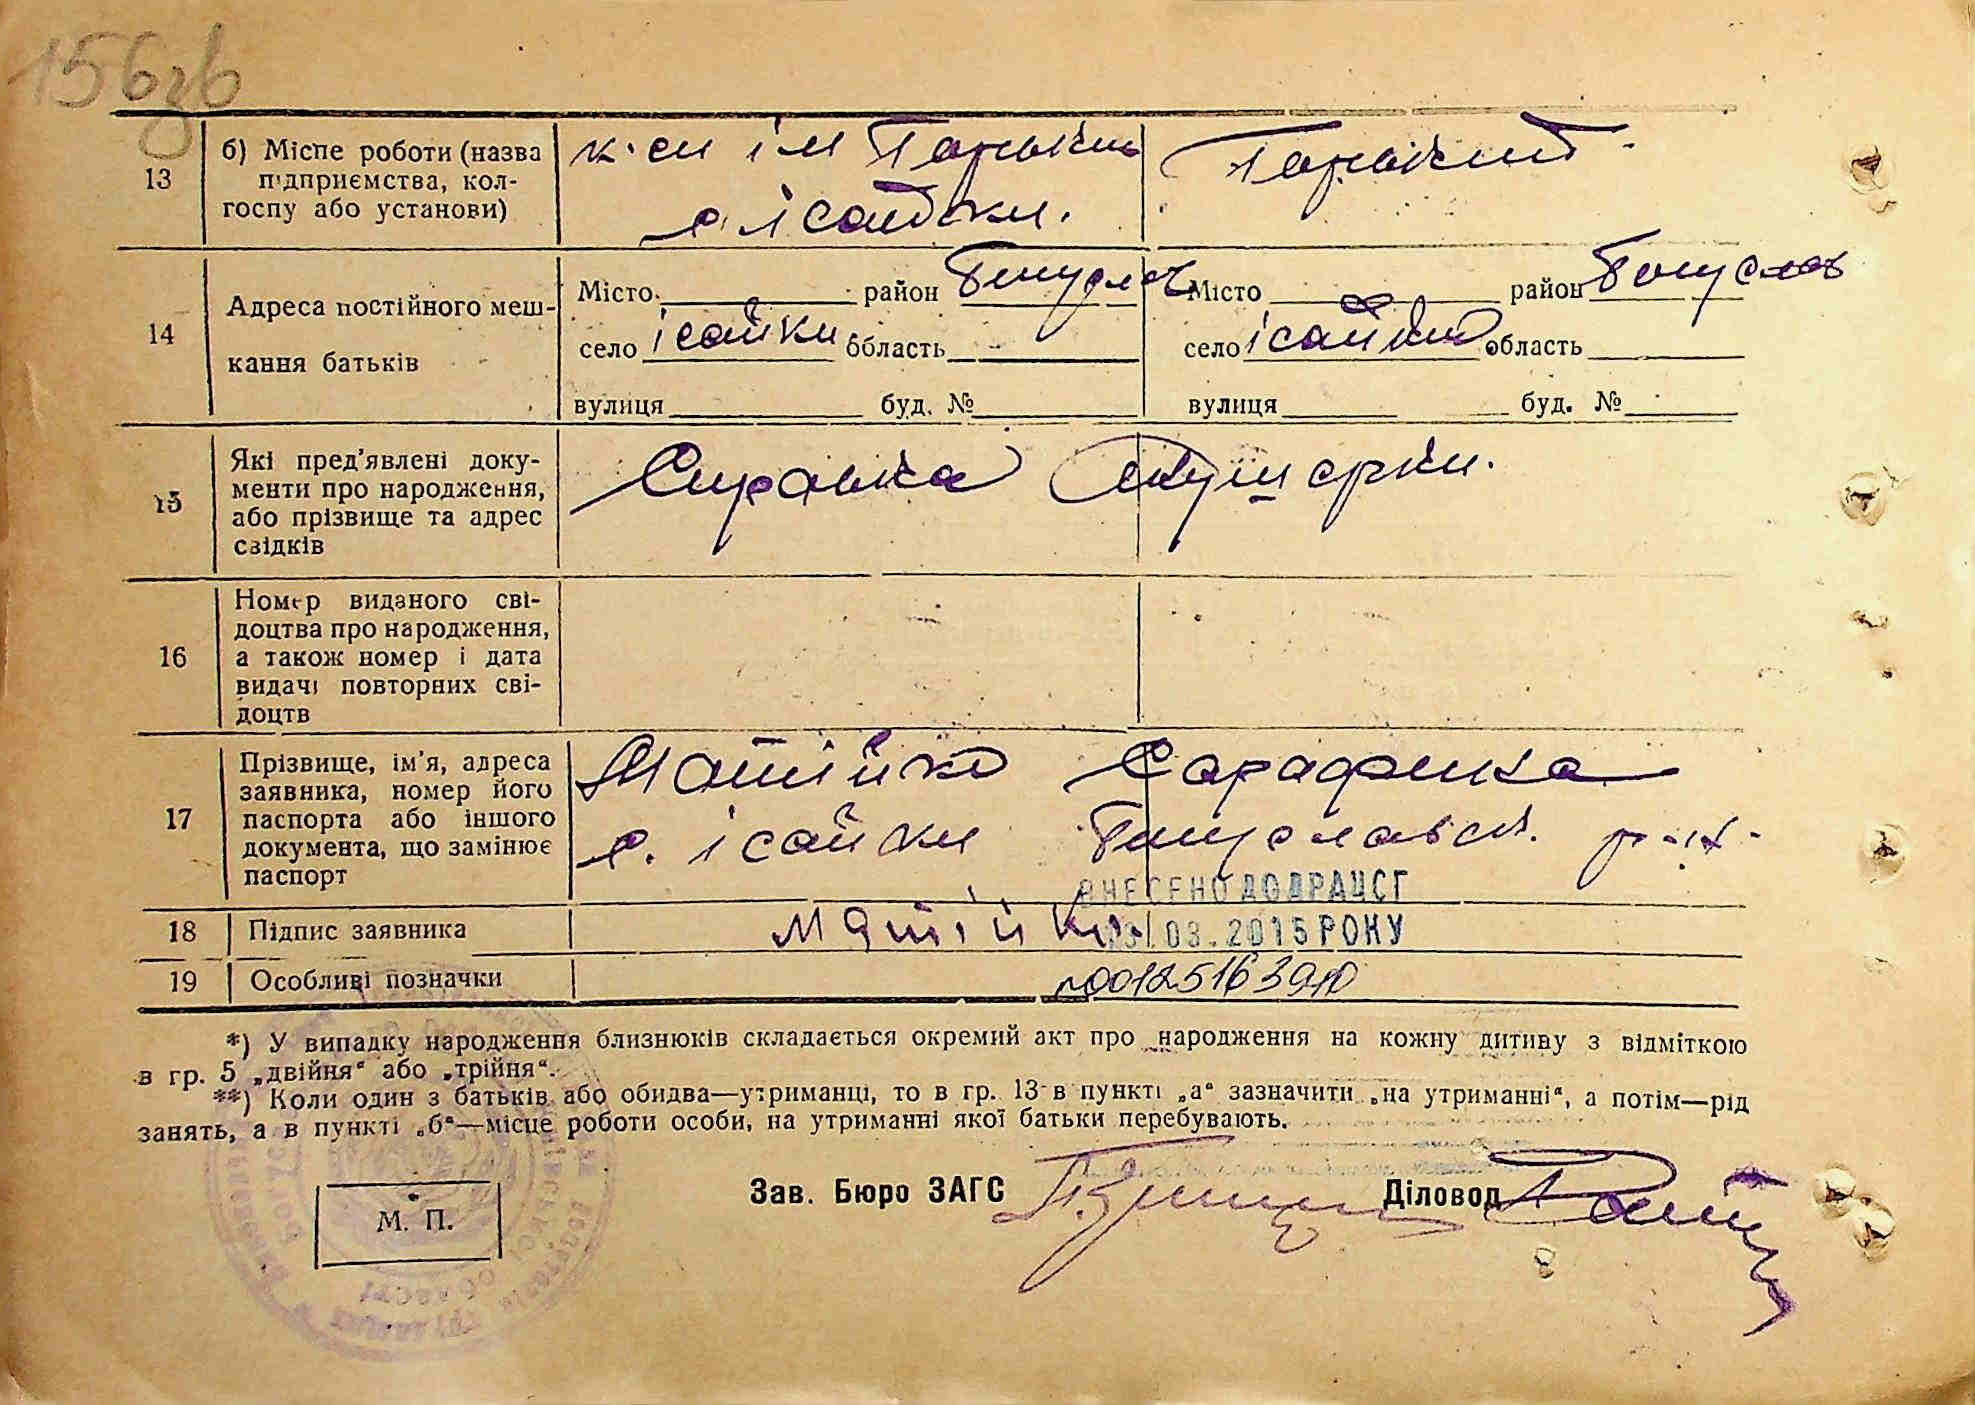 156зв
13
б) Місце роботи (назва
підприємства, кол-
госпу або установи)
к-сп ім Горького
с. Ісайки.
Горький
14
Адреса постійного меш-
кання батьків
Місто район Богуслав
село Ісайки область
вулиця буд. №
Місто район Богуслав
село Ісайки область
вулиця буд. №
15
Які пред'явлені доку-
менти про народження,
або прізвище та адрес
свідків
Справка Акушерки.
16
Номер виданого сві-
доцтва про народження,
а також номер і дата
видачі повторних сві-
доцтв
17
Прізвище, ім'я, адреса
заявника, номер його
паспорта або іншого
документа, що замінює
паспорт
Матійко Сарафина
с. Ісайки Богуславськ. р-н
ВНЕСЕНО ДО ДРАЦСГ
03.2015 РОКУ
18
Підпис заявника
Матійко
19
Особливі позначки
*) У випадку народження близнюків складається окремий акт про народження на кожну дитину з відміткою
в гр. 5 „двійня“ або „трійня“.
**) Коли один з батьків або обидва—утриманці, то в гр. 13 в пункті „а“ зазначити „на утриманні“, а потім—рід
занять, а в пункті „б“—місце роботи особи, на утриманні якої батьки перебувають.
Зав. Бюро ЗАГС
Діловод
М. П.